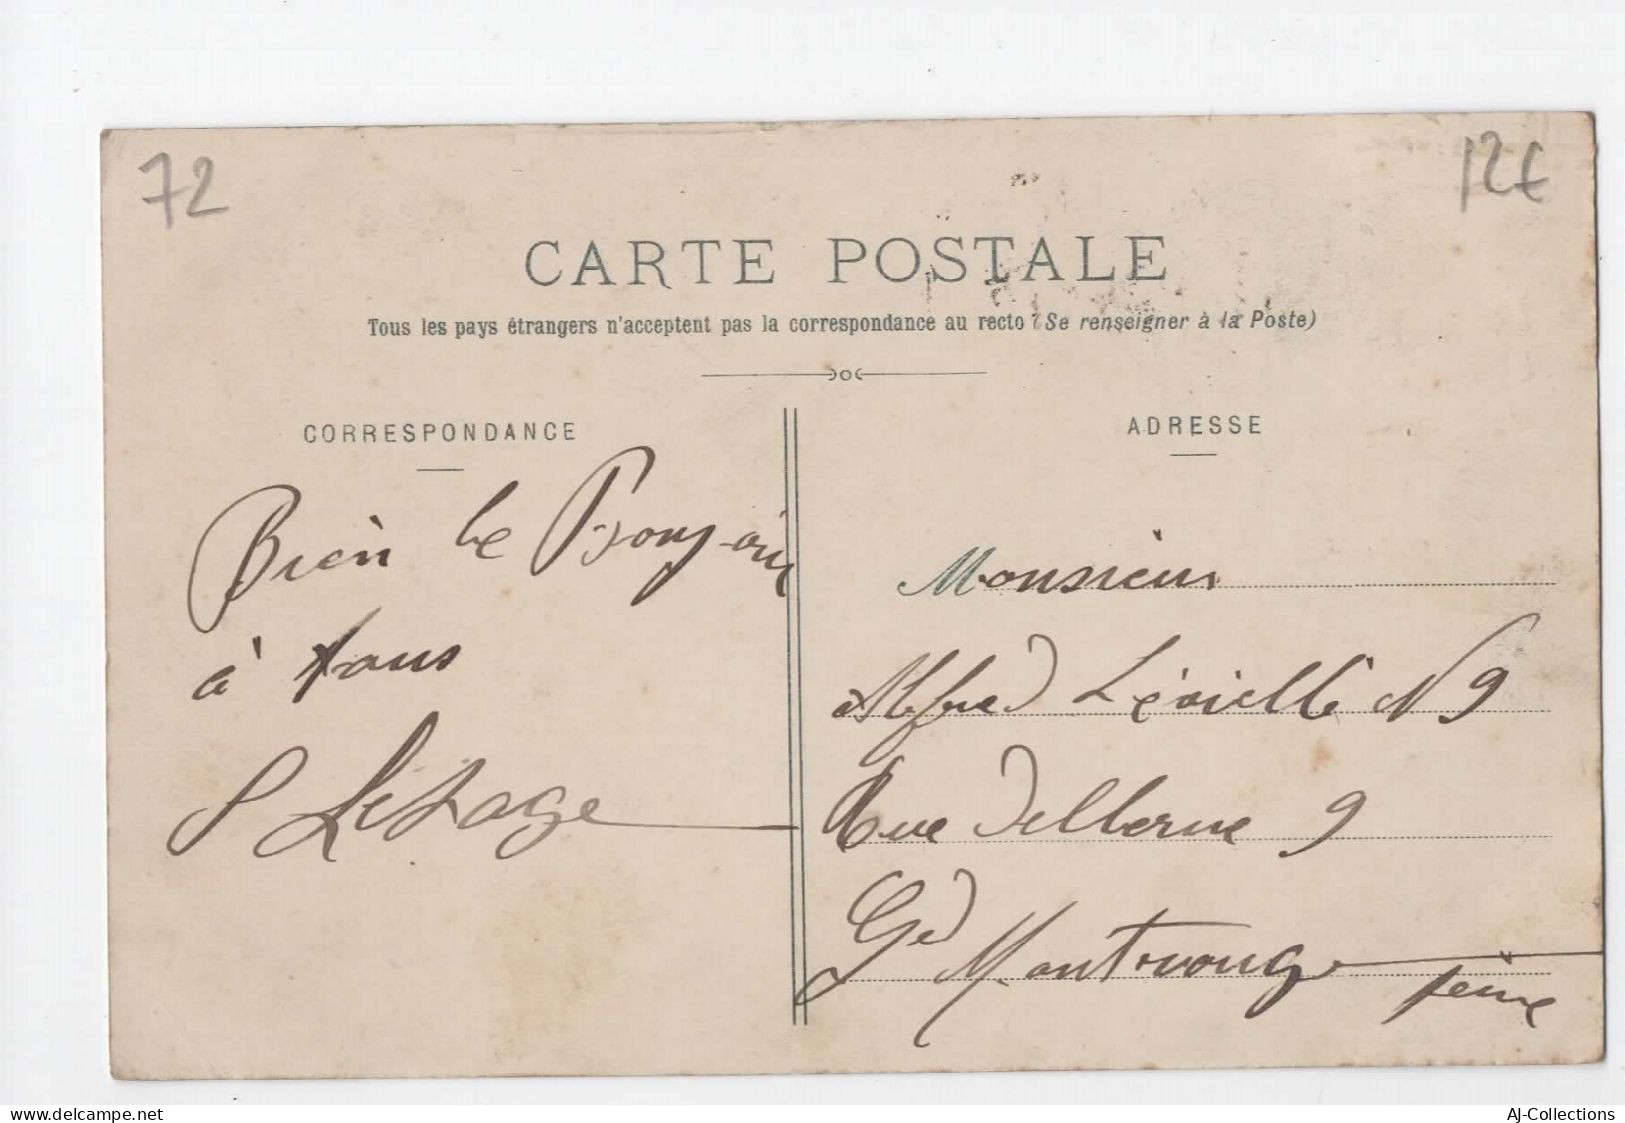 72
12€
CARTE POSTALE
Tous les pays étrangers n'acceptent pas la correspondance au recto (Se renseigner à la Poste)
CORRESPONDANCE
ADRESSE
Bien le Bonjour
à tous
Lesage
Monsieur
Alfred N 9
Rue 9
Gd Montrouge
Seine
www.delcampe.net
AJ-Collections